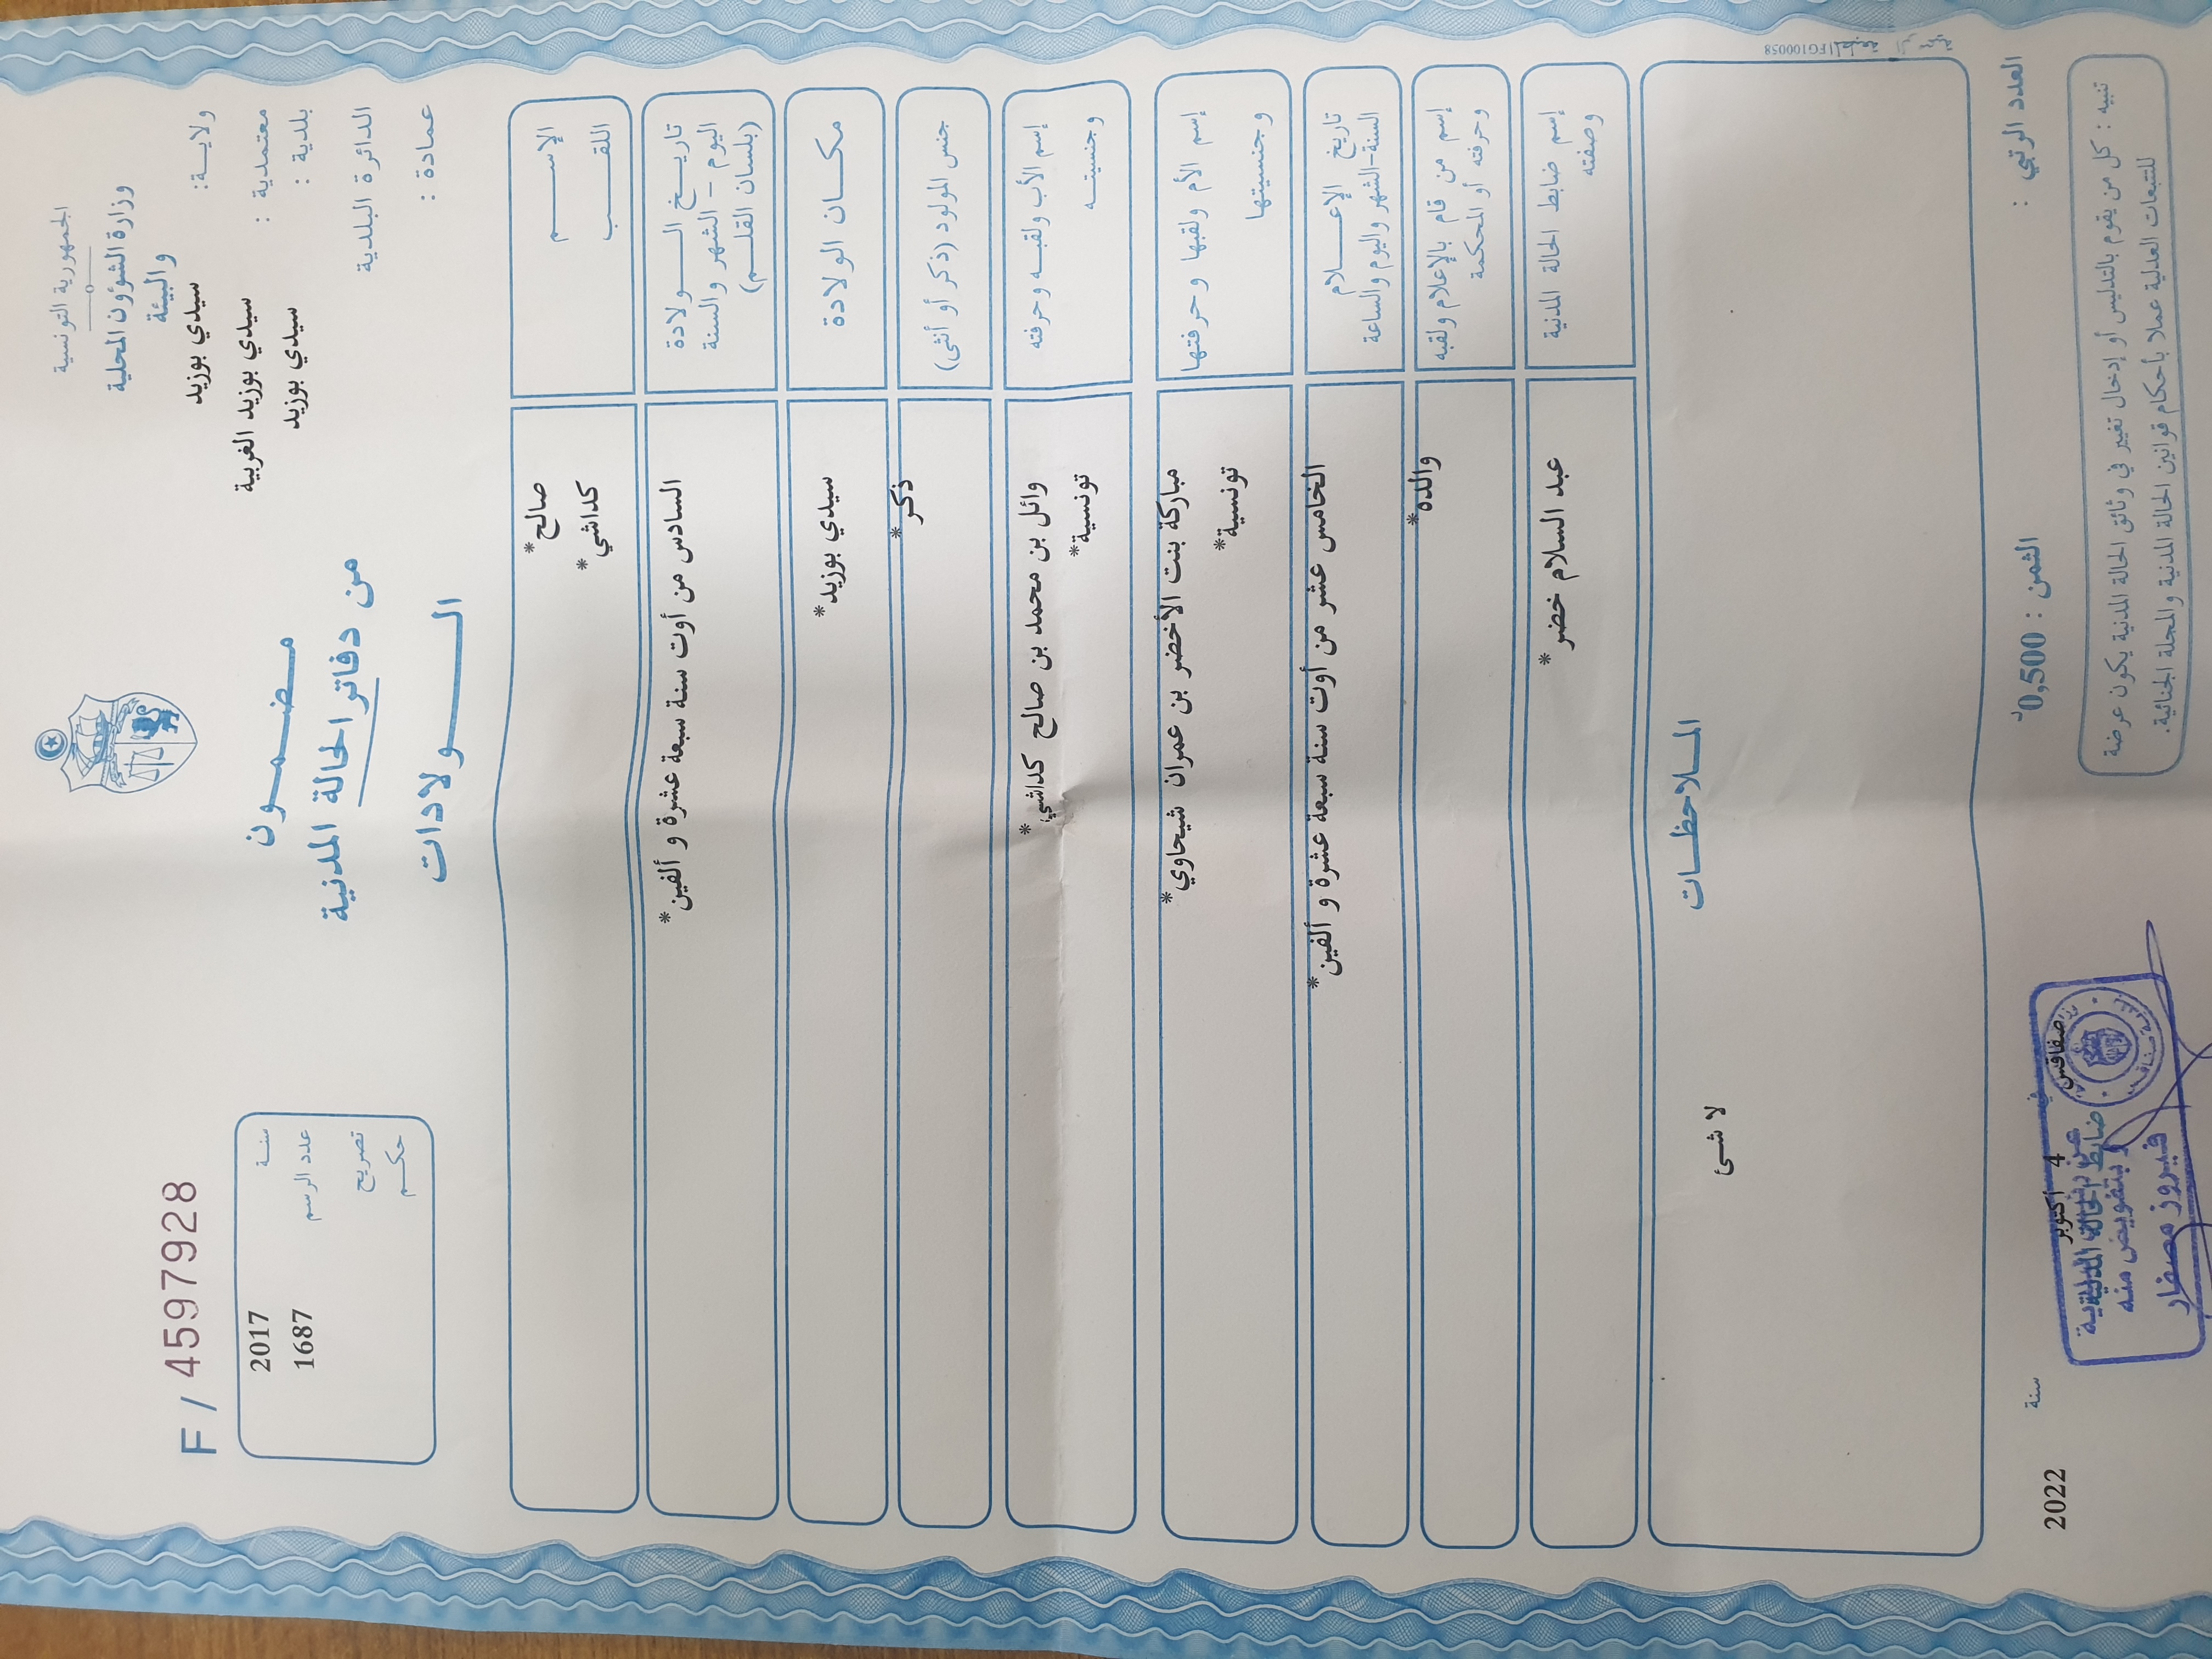 الجمهورية التونسية
وزارة الشؤون المحلية
والبيئة
ولاية: سيدي بوزيد
معتمدية : سيدي بوزيد الغربية
بلدية : سيدي بوزيد
الدائرة البلدية
عمادة :
مضمون
من دفاتر الحالة المدنية
الولادات
F / 4597928
سنة 2017
عدد الرسم 1687
تصريح
حكم
الإسم صالح*
اللقب كداشي*
تاريخ الولادة
اليوم - الشهر والسنة
(بلسان القلم)
السادس من أوت سنة سبعة عشرة و ألفين*
مكان الولادة سيدي بوزيد*
جنس المولود (ذكر أو أنثى) ذكر*
إسم الأب ولقبه وحرفته وائل بن محمد بن صالح كداشي*
وجنسيته تونسية*
إسم الأم ولقبها وحرفتها مباركة بنت الأخضر بن عمران شيحاوي*
وجنسيتها تونسية*
تاريخ الإعلام
السنة-الشهر واليوم والساعة
الخامس عشر من أوت سنة سبعة عشرة و ألفين*
إسم من قام بالإعلام ولقبه والده*
وحرفته أو المحكمة
إسم ضابط الحالة المدنية عبد السلام خضر*
وصفته
الملاحظات
لا شئ
FG100058
العدد الرتبي :
الثمن : 0,500د
صفاقس في 4 أكتوبر سنة 2022
ضابط الحالة المدنية
و بتفويض منه
فيروز مصفار
تنبيه : كل من يقوم بالتدليس أو إدخال تغيير في وثائق الحالة المدنية يكون عرضة
للتتبعات العدلية عملا بأحكام قوانين الحالة المدنية والمجلة الجنائية.